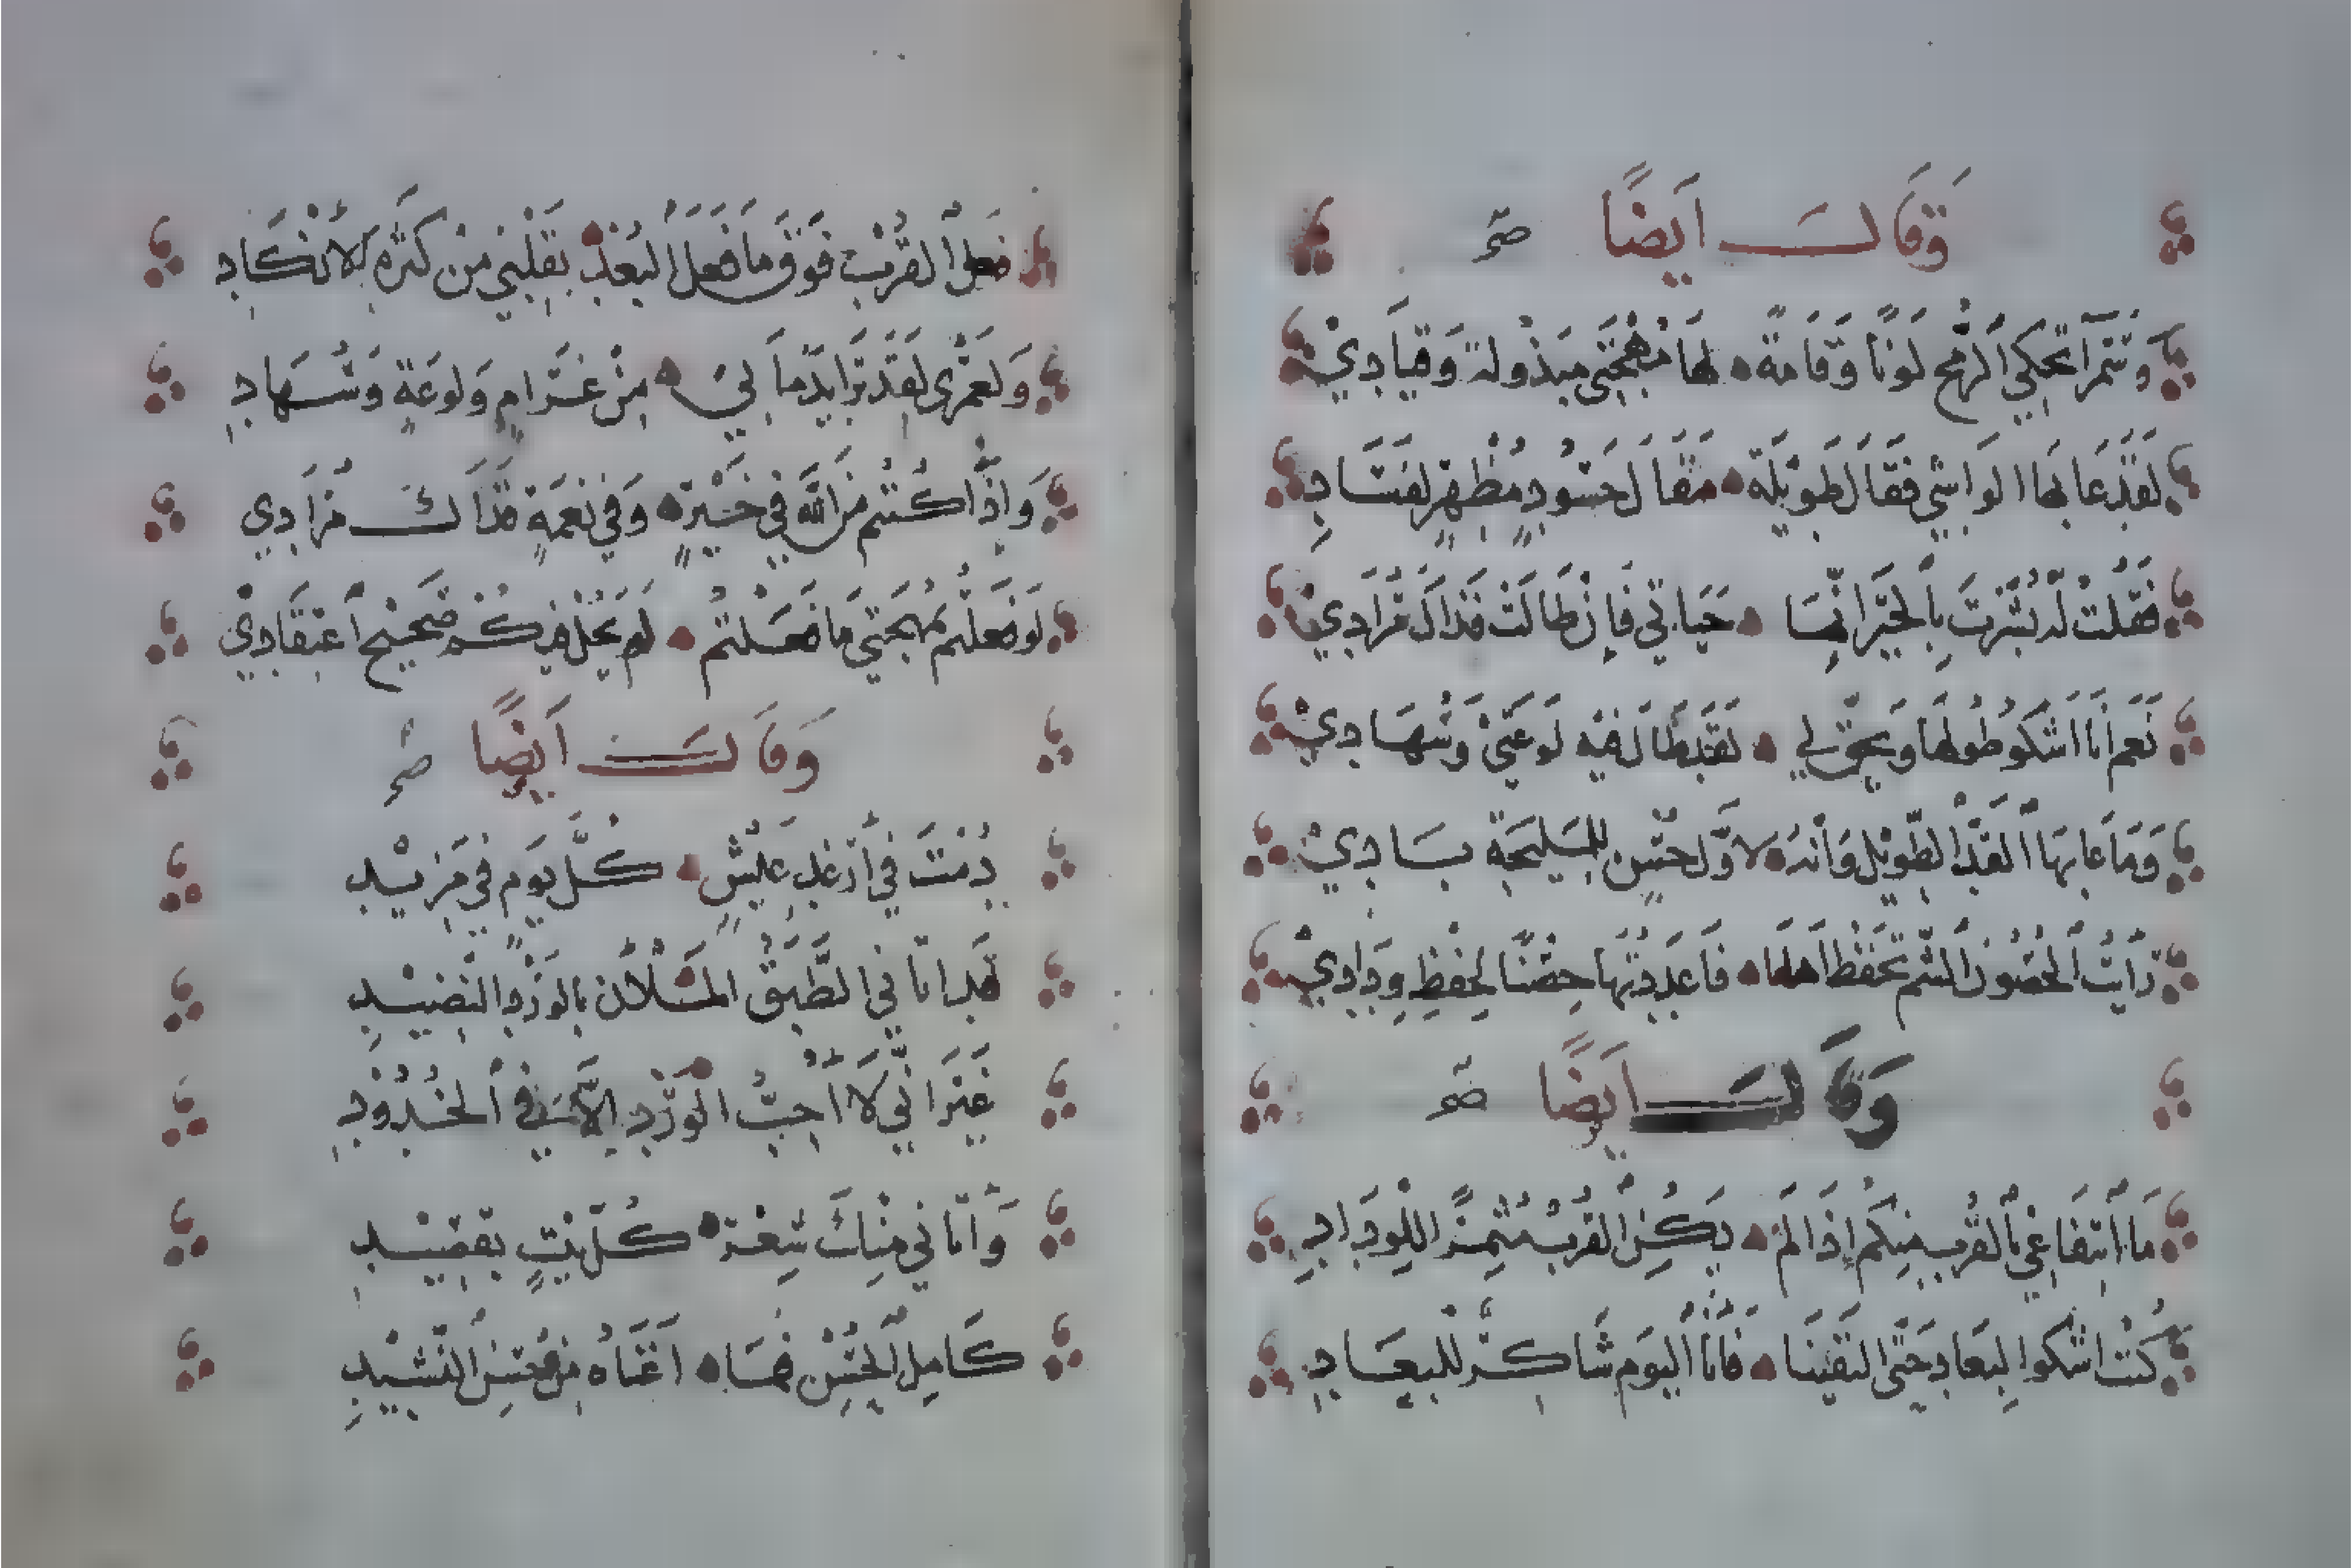 وَقَالَ أَيضًا صح
وَسَمْرَآءَ تَحْكِي الرُّمْحَ لَونًا وَقَامَةً لَهَا مُهْجَتِي مَبْذُولَة وَقِيَادِيْ
لَقَدْ عَابَهَا الوَاشِي فَقَالَ طَوِيْلَة مَقَالَ حَسُودٍ مُظْهِرٍ لفَسَادِ
فَقُلْتُ لَهُ بُشِّرْتَ بِالخَيْرِ إِنَّهَا حَيَاتِي فَإِنْ طَالَتْ فَذَاكَ مُرَادِيْ
نَعَم أَنَا أَشْكُو طُولَهَا وَيَحِقُّ لِي لَقَد طَالَ فيه لَوعَتِيْ وَسُهَادِيْ
وَمَا عَابَهَا القَدُّ الطَّوِيْلُ وَأَنَّهُ لَأَوَّلُ حُسْنٍ لِلمَلِيحَةِ بَادِيْ
رَأَيْتُ الحُصُونَ الشُّمَّ تَحْفَظُ أَهلهَا فَأَعدَدتُهَا حِصْنًا لِحِفْظِ وِدَادِيْ
وَقَالَ أَيضًا صح
مَا انتِفَاعِي بِالقُربِ مِنكُم إِذَا لَمْ يَكُنِ القُربُ مُثْمِرًا لِلوِدَادِ
كُنْتُ أَشْكُوا البعَادَ حَتَّى التَقَيْنَا فَأَنَا اليَومَ شَاكِرٌ لِلبعَادِ
فَعَلَ القُرْبُ فَوقَ مَا فَعَلَ البُعْدُ بِقَلْبِي مِنْ كَثْرَةِ الأَنْكَادِ
وَلَعَمْرِي لَقَدْ تَزَايَدَ مَا بِي مِنْ غَرَامٍ وَلَوعَةٍ وَسُهَادِ
وَإِذَا كُنْتُم مِنَ اللَّهِ فِي خَيْرٍ وَفِي نِعْمَةٍ فَذَاكَ مُرَادِي
لَو فَعَلْتُم بِمُهجَتِي مَا فَعَلْتُمْ لَم يَحُلْ فِيكُمْ صَحِيْحُ اعتِقَادِيْ
وَقَالَ أَيضًا صح
دُمْتَ فِي أَرْغَدِ عَيْشٍ كُلَّ يَومٍ فِي مَزِيْدِ
قَد أتَانَا فِي الطَّبَقُ المَلْآن بِالوَرْدِ النَّضِيْدِ
غَيْرَ أَنِّي لَا أُحِبُّ الوَرْدِ إِلَّا فِي الخُدُوْدِ
وَأَتَانِي مِنْكَ شِعْر كُلُّ بَيْتٍ بِقَصِيْدِ
كَامِلُ الحُسْنِ فَمَا أَغْنَاهُ مِن حُسْنِ النَّشِيْدِ